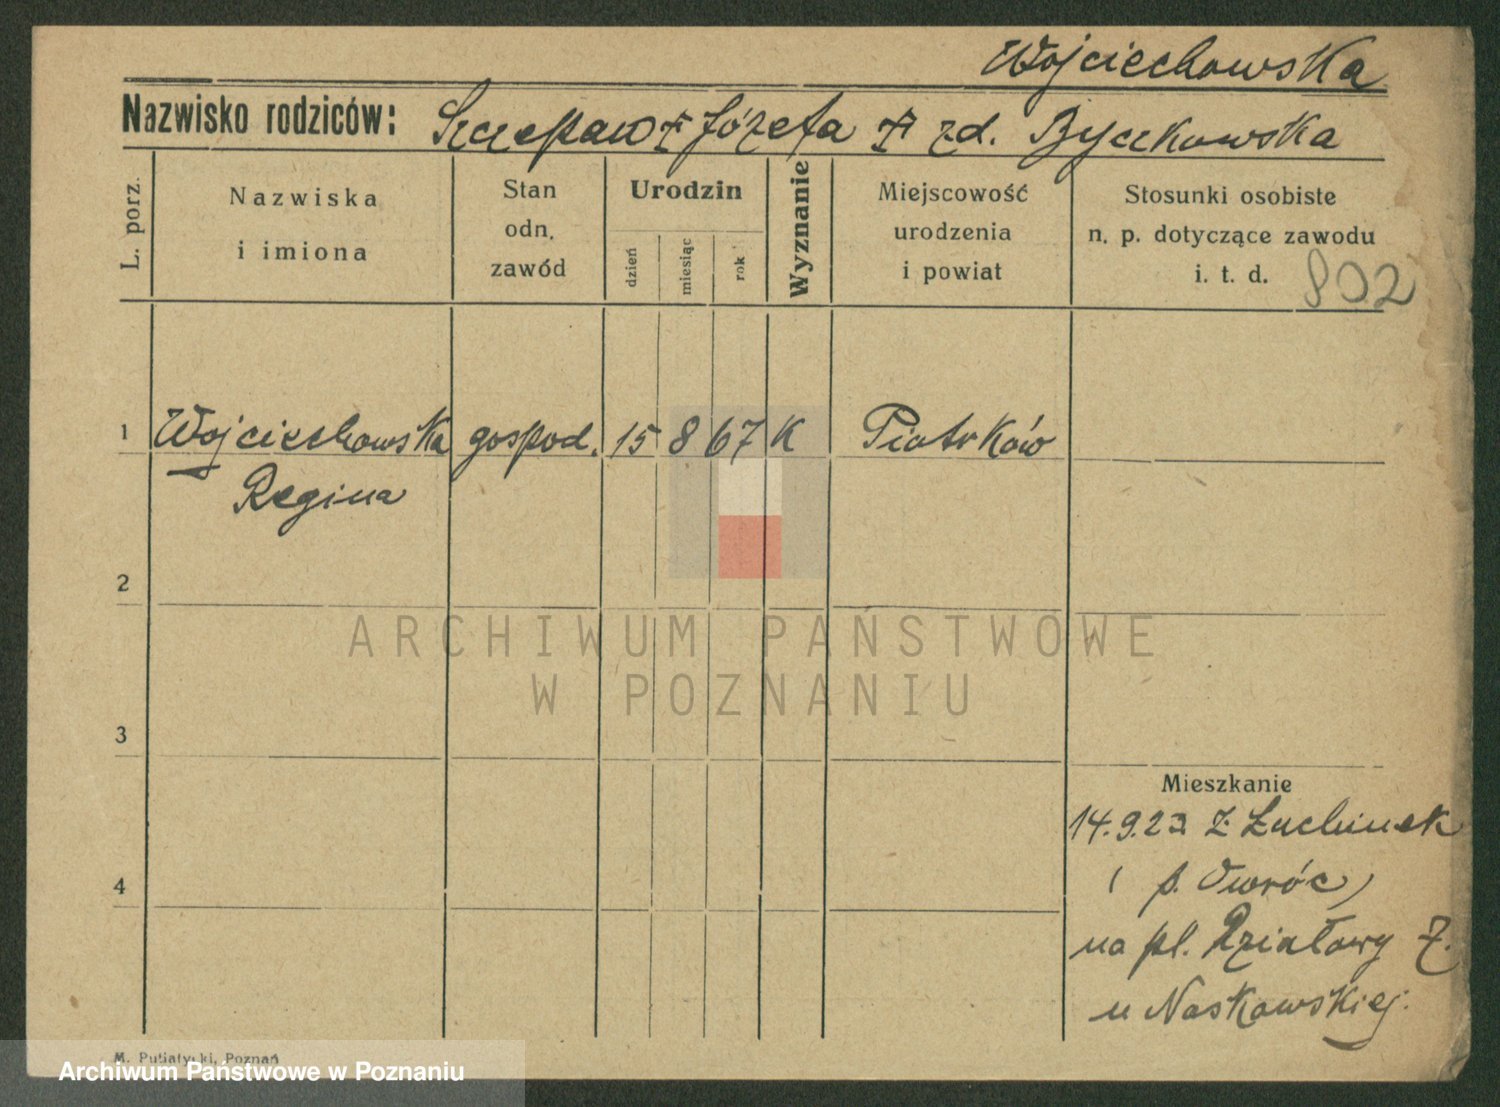 Wojciechowska
Nazwisko rodziców: Szczepan † Józefa † zd. Byczkowska
L. porz.
Nazwiska
i imiona
Stan
odn.
zawód
Urodzin
dzień
miesiąc
rok
Wyznanie
Miejscowość
urodzenia
i powiat
Stosunki osobiste
n. p. dotyczące zawodu
i. t. d.
802
1 Wojciechowska gospod. 15 8 67 K Piotrków
Regina
2
3
4
Mieszkanie
14.9.23 z
( p.
na pl. Działowy 7.
u Noskowskiej.
M. Putiatycki, Poznań
ARCHIWUM PAŃSTWOWE
W POZNANIU
Archiwum Państwowe w Poznaniu